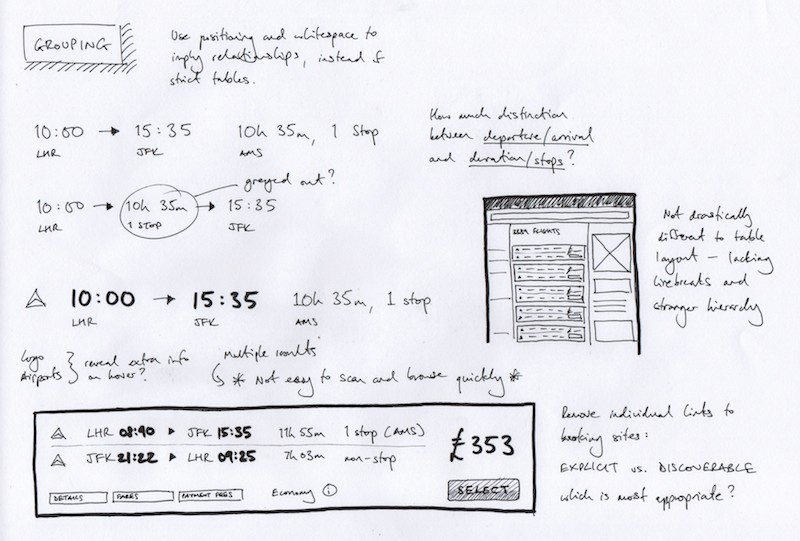 GROUPING
Use positioning and whitespace to
imply relationships, instead of
strict tables.
10:00 → 15:35 10h 35m, 1 stop
LHR JFK AMS
How much distinction
between departure/arrival
and duration/stops?
greyed out?
10:00 → 10h 35m → 15:35
LHR 1 STOP JFK
2589 FLIGHTS
Not drastically
different to table
layout – lacking
linebreaks and
stronger hierarchy
10:00 → 15:35 10h 35m, 1 stop
LHR JFK AMS
Logo
Airports } reveal extra info
on hover?
Multiple results
* Not easy to scan and browse quickly *
LHR 08:40 ▶ JFK 15:35 11h 55m 1 stop (AMS)
JFK 21:22 ▶ LHR 09:25 7h 03m non-stop
£353
DETAILS FARES PAYMENT FEES Economy i SELECT
Remove individual links to
booking sites:
EXPLICIT vs. DISCOVERABLE
which is most appropriate?